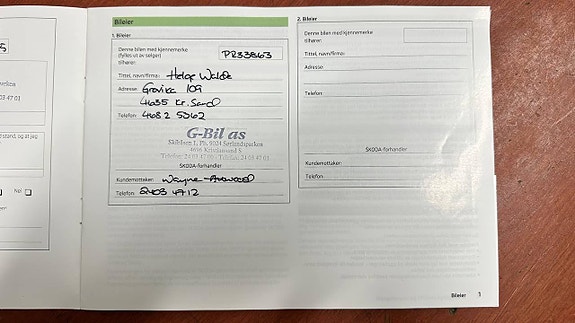 Bileier
1. Bileier
Denne bilen med kjennemerke
(fylles ut av selger)
tilhører:
PR33863
Tittel, navn/firma: Helge Walde
Adresse: Grovika 109
4635 Kr.Sand
Telefon: 4682 5362
G-Bil as
Skibåsen 1, Pb. 9034 Sørlandsparken
4696 Kristiansand S
Telefon: 24 03 47 00 · Telefax: 24 03 47 01
SKODA-forhandler
Kundemottaker: Wayne
Telefon: 2403 4712
2. Bileier
Denne bilen med kjennemerke
tilhører:
Tittel, navn/firma:
Adresse:
Telefon:
SKODA-forhandler
Kundemottaker:
Telefon:
Bileier 3
03 47 01
stand, og at jeg
Nei